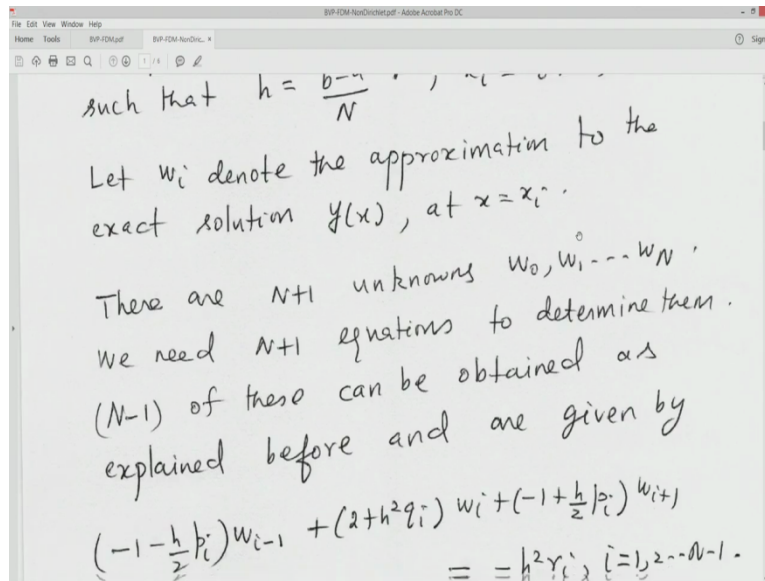 BVP-FDM-NonDirichlet.pdf - Adobe Acrobat Pro DC
File Edit View Window Help
Home Tools BVP-FDM.pdf BVP-FDM-NonDiric... × Sign
1 / 8
such that h = b-a / N
Let wi denote the approximation to the
exact solution y(x), at x = xi.
There are N+1 unknowns w0, w1 --- wN.
We need N+1 equations to determine them.
(N-1) of these can be obtained as
explained before and are given by
(-1 - h/2 pi) wi-1 + (2+h²qi) wi + (-1 + h/2 pi) wi+1
= -h²ri, i=1,2--N-1.